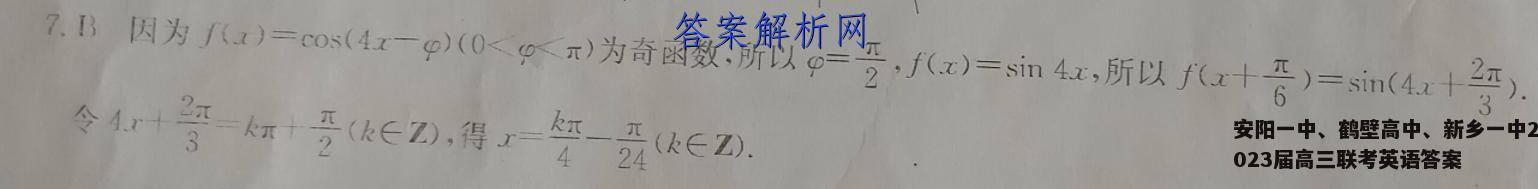 7. B 因为 f(x)=cos(4x-φ)(0<φ<π)为奇函数,所以 φ=π/2,f(x)=sin 4x,所以 f(x+π/6)=sin(4x+2π/3).
答案解析网
令 4x+2π/3=kπ+π/2(k∈Z),得 x=kπ/4-π/24(k∈Z).
安阳一中、鹤壁高中、新乡一中2
023届高三联考英语答案